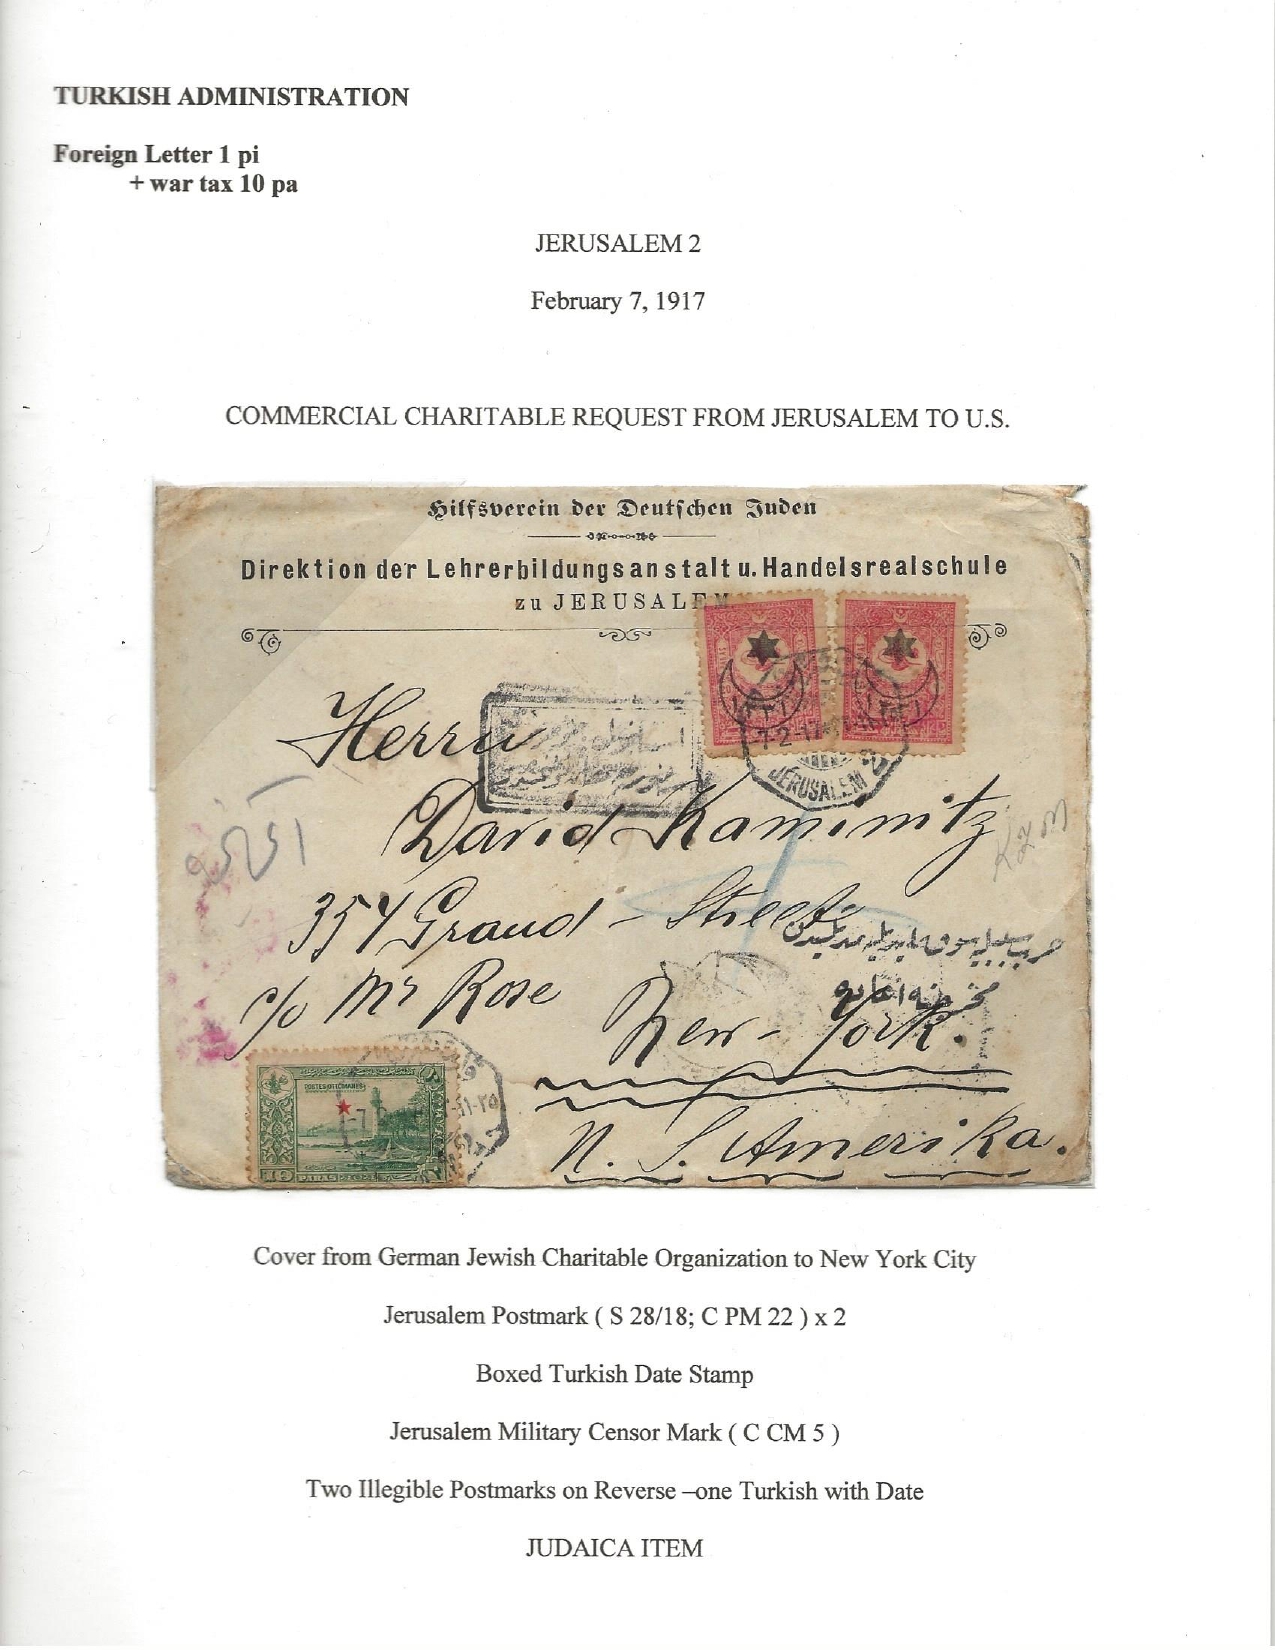 TURKISH ADMINISTRATION
Foreign Letter 1 pi
+ war tax 10 pa
JERUSALEM 2
February 7, 1917
COMMERCIAL CHARITABLE REQUEST FROM JERUSALEM TO U.S.
Hilfsverein der Deutschen Juden
Direktion der Lehrerbildungsanstalt u. Handelsrealschule
zu JERUSALEM
Herrn
David Kaminitz
354 Grand - Street
c/o Mr Rose
New-York.
N. S. Amerika.
7-2-17
JERUSALEM 2
POSTES OTTOMANES
10 PARAS 10
Cover from German Jewish Charitable Organization to New York City
Jerusalem Postmark ( S 28/18; C PM 22 ) x 2
Boxed Turkish Date Stamp
Jerusalem Military Censor Mark ( C CM 5 )
Two Illegible Postmarks on Reverse –one Turkish with Date
JUDAICA ITEM